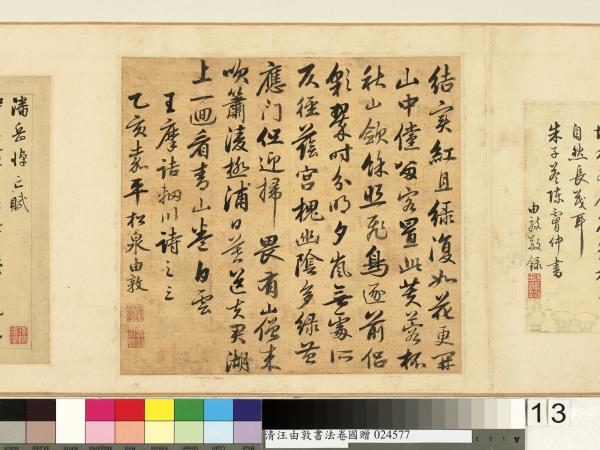 自然長茂耳
朱子答陳膚仲書
由敦敬錄
結實紅且綠復如花更開
山中儻留客置此芙蓉杯
秋山歛餘照飛鳥逐前侶
彩翠時分明夕嵐無處所
仄徑蔭宮槐幽陰多綠苔
應門但迎掃畏有山僧來
吹簫淩極浦日暮送夫君湖
上一迴看青山卷白雲
王摩詰輞川詩之三
乙亥嘉平松泉由敦
潘岳悼亡賦
清汪由敦書法卷國贈 024577
13